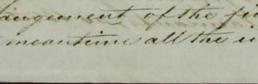 angement of the
meantime all the